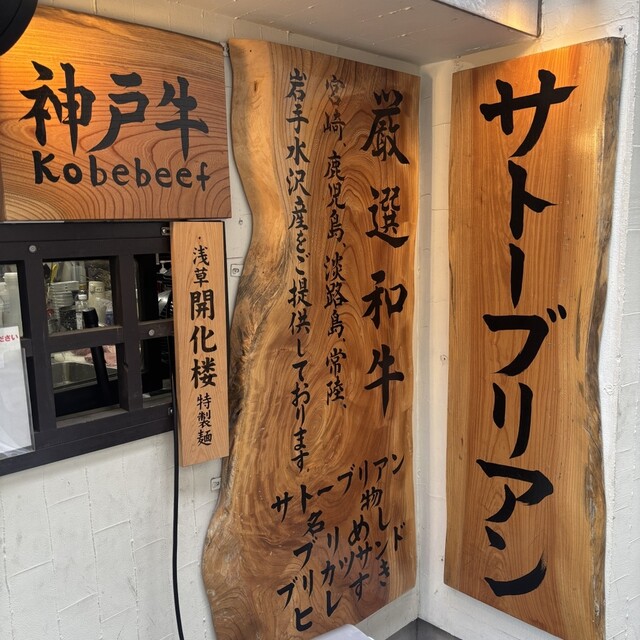 神戸牛
Kobebeef
浅草 開化楼 特製麺
ださい
厳選和牛
宮崎、鹿児島、淡路島、常陸、
岩手水沢産をご提供しております。
サトーブリアン
名物
ブリめし
ブリカツサンド
ヒレすき
サトーブリアン